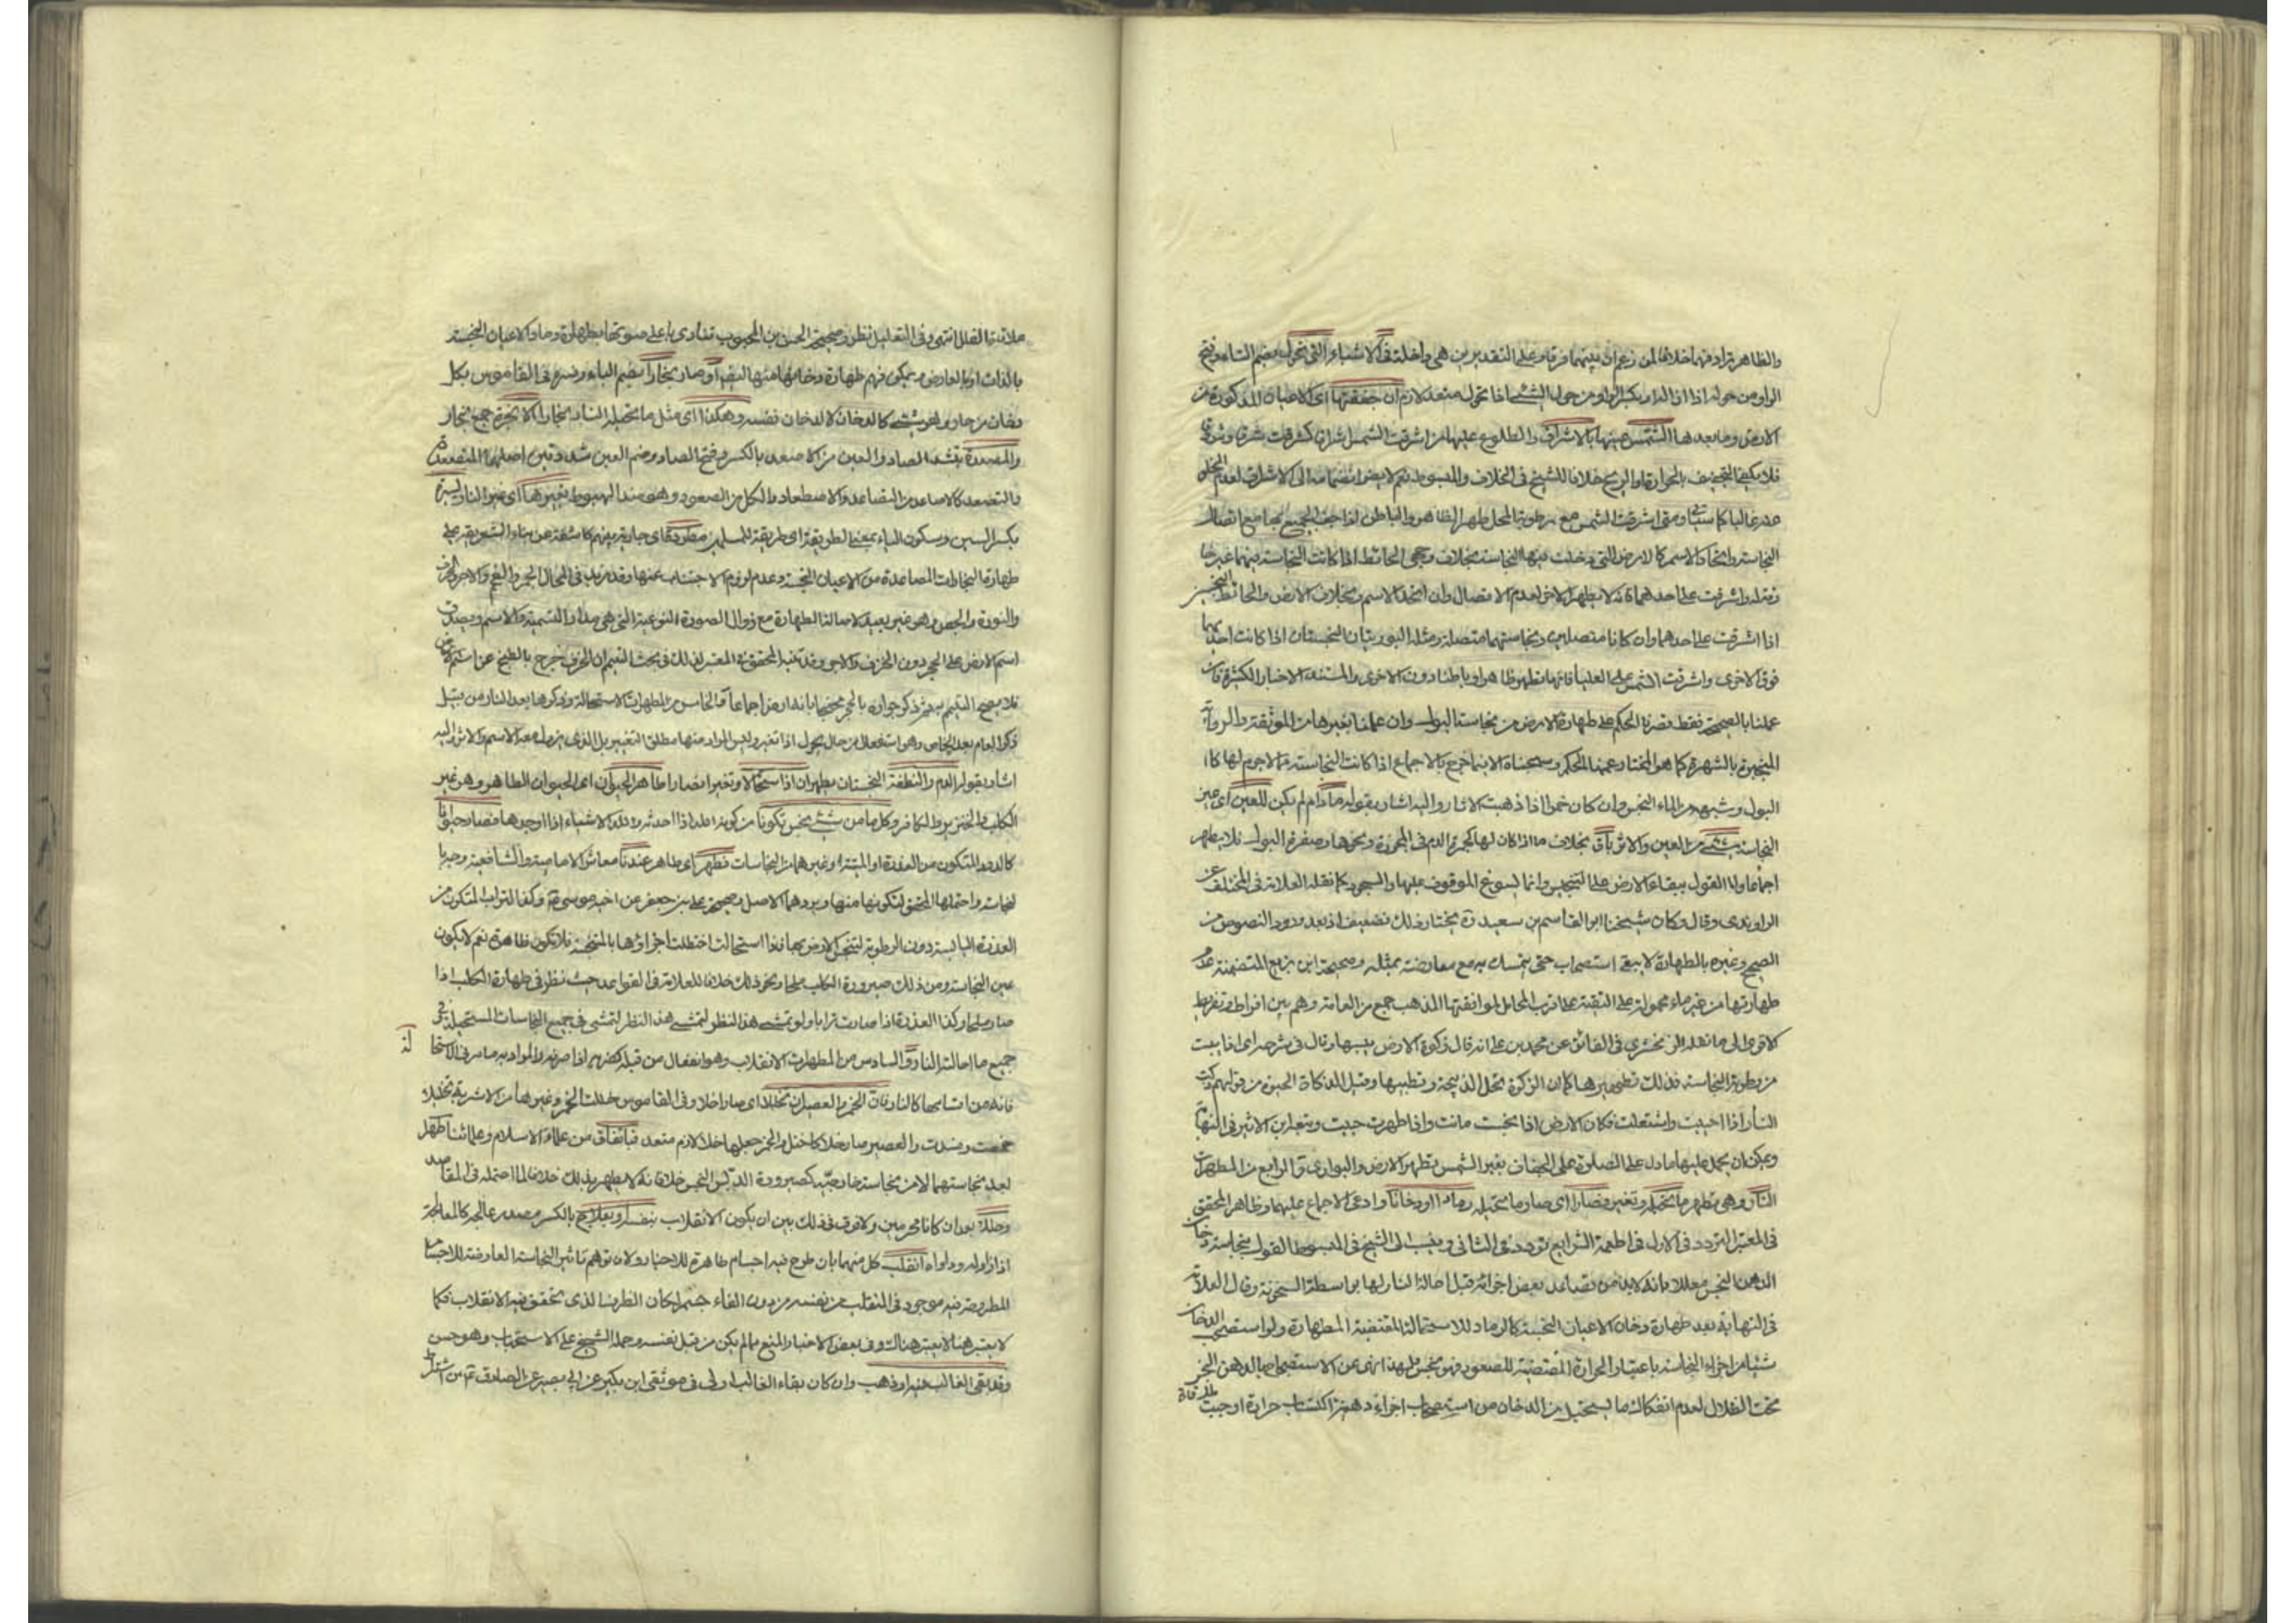 والظاهر ترادفهما خلافا لمن زعم ان بينهما فرقا وعلى التقديرين هي داخلة في الاشياء التي تحول بضم التاء وفتح
الواو من حوله اذا اداره بكسر الواو من حول الشئ اذا تحول متعد لازم ان جففتها اى الاعيان المذكورة من
الارض وما بعدها الشمس عينها بالاشراق والطلوع عليها من اشرقت الشمس اشراق كشرقت شرقا وشروقا
فلا يكفي التجفيف بالحرارة او الريح خلافا للشيخ في الخلاف والمبسوط نعم لا يضر انضمامه الى الاشراق لعدم الخلو
عنه غالبا كما سبق ومتى اشرقت الشمس مع رطوبة المحل طهر الظاهر والباطن اذا جف الجميع بها مع اتصال
النجاسة واتحاد الاسم كالارض التي دخلت فيها النجاسة بخلاف وجهى الحائط اذا كانت النجاسة فيهما غير خا
رقة واشرقت على احدهما فانه لا يطهر الاخر لعدم الاتصال وان اتحد الاسم وبخلاف الارض والحائط النجسين
اذا اشرقت على احدهما وان كانا متصلين ونجاستهما متصلة ومثله البوريتان النجستان اذا كانت احديهما
فوق الاخرى واشرقت الشمس على العليا فانها تطهر ظاهرا وباطنا دون الاخرى والمستند الاخبار الكثيرة فان
عملنا بالصحيحة فقط قصرنا الحكم على طهارة الارض من نجاسة البول وان عملنا بغيرها من الموثقة والرواية
المنجبرة بالشهرة كما هو المختار عممنا الحكم وسحبناه الا فيما خرج بالاجماع اذا كانت النجاسة مما لا جرم لها كا
البول وشبهه من الماء النجس وان كان خمرا اذا ذهبت الاثار واليه اشار بقوله مادام لم يكن للعين اى عين
النجاسة شئ من العين والاثر باق بخلاف ما اذا كان لها كحمرة الدم في الخمرة ونحوها وصفرة البول فلا يطهر
اجماعا واما القول ببقاء الارض على التنجيس وانما يسوغ الوقوف عليها والسجود كما نقله العلامة في المختلف عن
الراوندى وقال وكان شيخنا ابو القاسم بن سعيد ره يختار ذلك فضعيف اذ بعد ورود النصوص من
الصحيح وغيره بالطهارة لا يبقى استصحاب حتى يتمسك به مع معارضته بمثله وصحيحة ابن بزيع المتضمنة عدم
طهارتها من غير ماء محمولة على التقية على اقرب المحامل لموافقتها المذهب جمع من العامة وهم بين افراط وتفريط
كالاقوال ما نقله الزمخشرى في الفائق عن محمد بن على انه قال ذكوة الارض يبسها وقال في شرحه اى اذا يبست
من رطوبة النجاسة فذلك تطهيرها كما ان الذكوة تحل الذبيحة وتطيبها وقيل الذكاة الحيوة من قولهم ذكت
النار اذا احييت واشتعلت فكان الارض اذا نجست ماتت واذا طهرت حييت وتبعه ابن الاثير في النهاية
ويمكن ان يحمل عليها ما دل على الصلوة على الجفاف بغير الشمس بتطهر الارض والبوارى و الرابع من المطهرات
النار وهي تطهر ما تحيله وتغيره فصار اى صار ما تحيله رمادا او دخانا وادعى الاجماع عليهما وظاهر المحقق
في المعتبر التردد في الاول في اطعمة الشرايع تردد في الثانى وينسب الى الشيخ في المبسوط القول بنجاسة دخان
الدهن النجس معللا بانه لا بد من تصاعد بعض اجزائه قبل احالة النار لها بواسطة السخونة وقال العلامة
في النهاية بعد طهارة دخان الاعيان النجسة كالرماد للاستحالة المقتضية المطهارة ولو استصحب الدخان
شيئا من اجزاء النجاسة باعتبار الحرارة المقتضية للصعود فهو نجس ولهذا نهى عن الاستصباح بالدهن النجس
تحت الظلال لعدم انفكاك ما يستحيل من الدخان من استصحاب اجزاء دهنية اكتسبت حرارة اوجبت ملاقاة
ملاقتة الظل انتهى وفي التعليل نظر وصحيحة الحسن بن المحبوب تنادى باعلى صوتها بطهارة رماد الاعيان النجسة
بالذات او بالعارض ويمكن فهم طهارة دخانها منها ايضا او صار بخارا بضم الباء وفسره في القاموس بكل
دخان من حار وهو شئ كالدخان لا الدخان نفسه وهكذا اى مثل ما تحيله النار بخارا الابخرة جمع بخار
والمصعدة بتشديد الصاد والعين من الاصعد بالكسر وفتح الصاد وضم العين شددتين اصلهما المتصعدة
والتصعد كالاصاعد من التصاعد والاصطعاد والكل من الصعود وهو ضد الهبوط بغيرها اى غير النار لسيرة
بكسر السين وسكون الياء بمعنى الطريقة اى طريقة للمسلمين مطردة اى جارية بينهم كاشفة عن بناء الشريعة على
طهارة البخارات المصاعدة من الاعيان النجسة وعدم لزوم الاجتناب عنها وقد مر يد في المحال الجمر والفحم والاجر والخزف
والنورة والجص وهو غير بعيد لاصالة الطهارة مع زوال الصورة النوعية التي هي مدار التسمية والاسم ويصدق
اسم الارض على الحجر دون الخزف والاجر وقد تنبه المحقق في المعتبر لذلك في بحث التيمم ان الخزف خرج بالطبخ عن اسم الارض
فلا يصح التيمم به مع ذكر جوازه بالحجر محتجا بانه ارض اجماعا و الخامس من المطهرات الاستحالة وذكرها بعد النار من قبيل
ذكر العام بعد الخاص وهو استفعال من حال يحول اذا تغير وليس المراد منها مطلق التغيير بل الذى يزول معه الاسم والاثر واليه
اشار بقوله الدم والنطفة النجستان يطهران اذا استحالا وتغيرا فصارا طاهر الحيوان اى الحيوان الطاهر وهو غير
الكلب والخنزير والكافر وكل ما من شئ نجس تكونا من كونه الله اذا احدثه والله الاشياء اذا اوجدها فصار حيوانا
كالدود المتكون من العذرة او الميتة وغيرهما من النجاسات فطهر اى طاهر عندنا معاشر الامامية والشافعية وجه با
لنجاسة واحتملها المحقق لتكونها منها ويردهما الاصل وصحيحة على بن جعفر عن اخيه موسى ع وكذا التراب المتكون من
العذرة اليابسة دون الرطوبة لتنجس الارض بها فاذا استحالت اختلطت اجزاؤها بالمتنجسة فلا تكون طاهرة نعم لا يكون
عين النجاسة ومن ذلك صيرورة الكلب ملحا ونحو ذلك خلافا للعلامة في القواعد حيث نظر في طهارة الكلب اذا
صار ملحا وكذا العذرة اذا صارت ترابا ولو تمشى هذا النظر لتمشى هذا النظر لتمشى في جميع النجاسات المستحيلة في
جميع ما احالته النار و السادس من المطهرات الانقلاب وهو انفعال من قبله كضربه اذا صرفه والمراد به ما مر في الاستحا
لة
فانه من اقسامها كالنار فان الخمر والعصير ان تخللا اى صارا خلا وفي القاموس خللت الخمر وغيرها من الاشربة تخليلا
حمضت وفسدت والعصير صار خلا كاختل والخمر جعلها خلا لازم متعد فباتفاق من علماء الاسلام وعلمائنا طهرا
بعد نجاستهما الا من نجاسة خارجية كصيرورة الدبس النجس خلا فانه لا يطهر بذلك خلافا لما احتمله في المقاصد
وحللا بعد ان كانا محرمين ولا فرق في ذلك بين ان يكون الانقلاب بنفسه او بعلاج بالكسر مصدر عالج كالمعالجة
اذا زاوله وداواه انقلب كل منهما بان طرح فيه اجسام طاهرة للاخبار ولان توهم تاثير النجاسة العارضة للاجسام
المطروحة فيه موجود في المنقلب من نفسه من دون القاء جسم لمكان الظرف الذى تحقق فيه الانقلاب فكما
لا يعتبر هنا لا يعتبر هناك وفي بعض الاخبار المنع مما لم يكن من قبل نفسه وحمله الشيخ على الاستحباب وهو حسن
وقد بقى الغالب فيه او ذهب وان كان بقاء الغالب اولى في موثقى ابن بكير عن ابى بصير عن الصادق ع من اشتراط